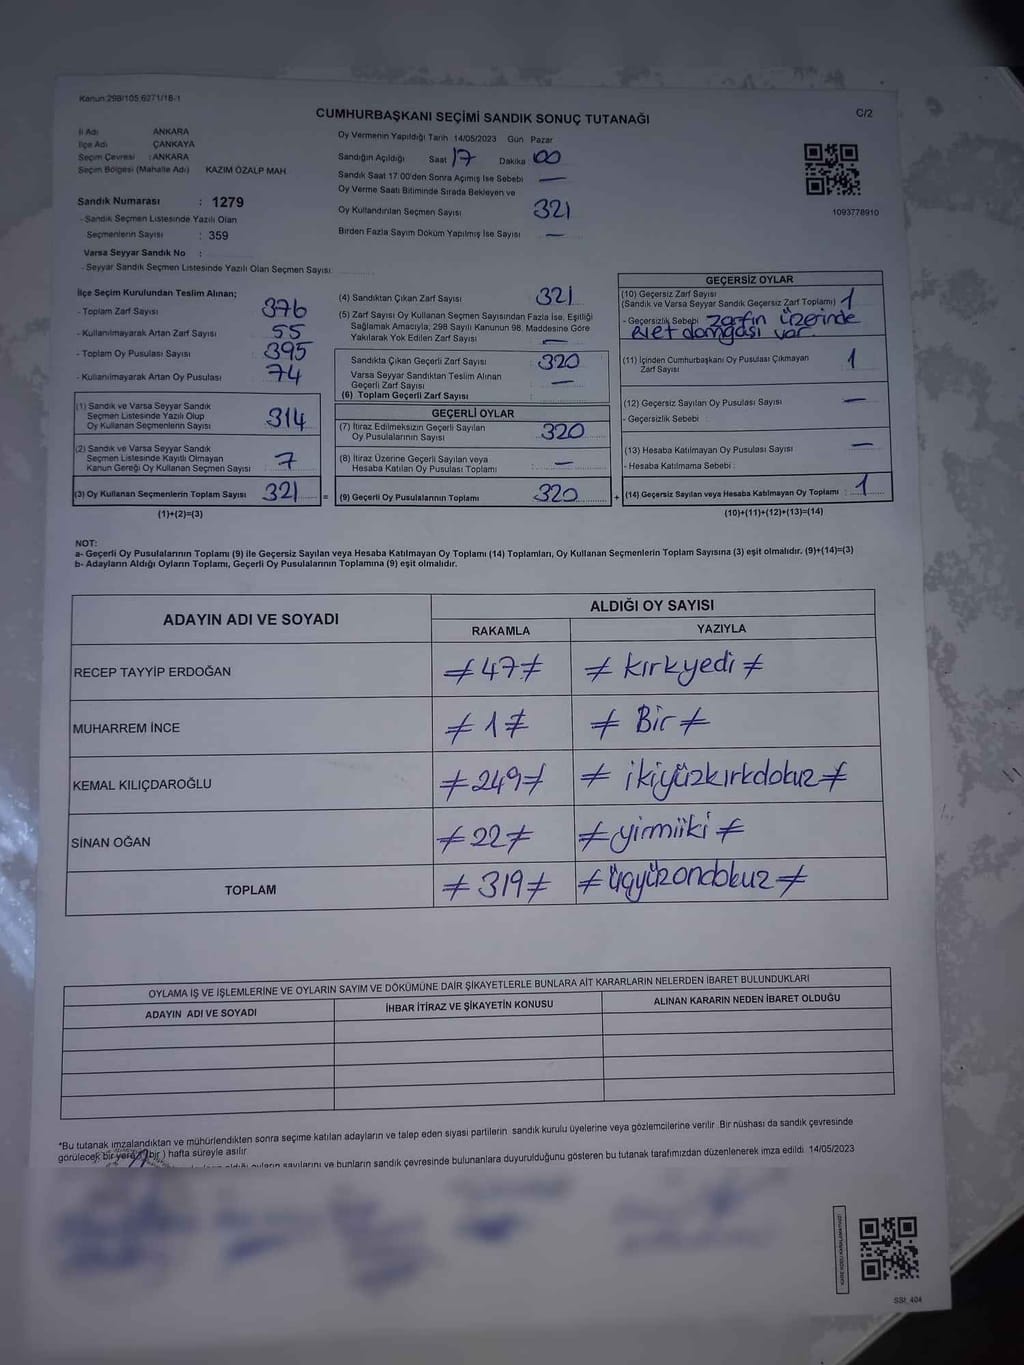 Kanun:298/105,6271/18-1
C/2
CUMHURBAŞKANI SEÇİMİ SANDIK SONUÇ TUTANAĞI
İl Adı ANKARA
İlçe Adı ÇANKAYA
Seçim Çevresi : ANKARA
Seçim Bölgesi (Mahalle Adı) KAZIM ÖZALP MAH.
Sandık Numarası : 1279
- Sandık Seçmen Listesinde Yazılı Olan
Seçmenlerin Sayısı : 359
Varsa Seyyar Sandık No :
- Seyyar Sandık Seçmen Listesinde Yazılı Olan Seçmen Sayısı:
Oy Vermenin Yapıldığı Tarih 14/05/2023 Gün Pazar
Sandığın Açıldığı Saat 17 Dakika 00
Sandık Saat 17:00'den Sonra Açımış İse Sebebi —
Oy Verme Saati Bitiminde Sırada Bekleyen ve
Oy Kullandırılan Seçmen Sayısı 321
Birden Fazla Sayım Döküm Yapılmış İse Sayısı —
1093778910
İlçe Seçim Kurulundan Teslim Alınan;
- Toplam Zarf Sayısı 376
- Kullanılmayarak Artan Zarf Sayısı 55
- Toplam Oy Pusulası Sayısı 395
- Kullanılmayarak Artan Oy Pusulası 74
(1) Sandık ve Varsa Seyyar Sandık
Seçmen Listesinde Yazılı Olup
Oy Kullanan Seçmenlerin Sayısı 314
(2) Sandık ve Varsa Seyyar Sandık
Seçmen Listesinde Kayıtlı Olmayan
Kanun Gereği Oy Kullanan Seçmen Sayısı 7
(3) Oy Kullanan Seçmenlerin Toplam Sayısı 321 =
(1)+(2)=(3)
(4) Sandıktan Çıkan Zarf Sayısı 321
(5) Zarf Sayısı Oy Kullanan Seçmen Sayısından Fazla İse, Eşitliği
Sağlamak Amacıyla; 298 Sayılı Kanunun 98. Maddesine Göre
Yakılarak Yok Edilen Zarf Sayısı —
Sandıkta Çıkan Geçerli Zarf Sayısı 320
Varsa Seyyar Sandıktan Teslim Alınan
Geçerli Zarf Sayısı —
(6) Toplam Geçerli Zarf Sayısı
GEÇERLİ OYLAR
(7) İtiraz Edilmeksizin Geçerli Sayılan
Oy Pusulalarının Sayısı 320
(8) İtiraz Üzerine Geçerli Sayılan veya
Hesaba Katılan Oy Pusulası Toplamı : —
(9) Geçerli Oy Pusulalarının Toplamı 320 +
GEÇERSİZ OYLAR
(10) Geçersiz Zarf Sayısı
(Sandık ve Varsa Seyyar Sandık Geçersiz Zarf Toplamı) 1
- Geçersizlik Sebebi zarfın üzerinde
evet damgası var
(11) İçinden Cumhurbaşkanı Oy Pusulası Çıkmayan
Zarf Sayısı 1
(12) Geçersiz Sayılan Oy Pusulası Sayısı —
- Geçersizlik Sebebi
(13) Hesaba Katılmayan Oy Pusulası Sayısı —
- Hesaba Katılmama Sebebi :
(14) Geçersiz Sayılan veya Hesaba Katılmayan Oy Toplamı : 1
(10)+(11)+(12)+(13)=(14)
NOT:
a- Geçerli Oy Pusulalarının Toplamı (9) ile Geçersiz Sayılan veya Hesaba Katılmayan Oy Toplamı (14) Toplamları, Oy Kullanan Seçmenlerin Toplam Sayısına (3) eşit olmalıdır. (9)+(14)=(3)
b- Adayların Aldığı Oyların Toplamı, Geçerli Oy Pusulalarının Toplamına (9) eşit olmalıdır.
ADAYIN ADI VE SOYADI ALDIĞI OY SAYISI
RAKAMLA YAZIYLA
RECEP TAYYİP ERDOĞAN ≠ 47 ≠ ≠ kırkyedi ≠
MUHARREM İNCE ≠ 1 ≠ ≠ Bir ≠
KEMAL KILIÇDAROĞLU ≠ 249 ≠ ≠ ikiyüzkırkdokuz ≠
SİNAN OĞAN ≠ 22 ≠ ≠ yirmiiki ≠
TOPLAM ≠ 319 ≠ ≠ üçyüzondokuz ≠
OYLAMA İŞ VE İŞLEMLERİNE VE OYLARIN SAYIM VE DÖKÜMÜNE DAİR ŞİKAYETLERLE BUNLARA AİT KARARLARIN NELERDEN İBARET BULUNDUKLARI
ADAYIN ADI VE SOYADI İHBAR İTİRAZ VE ŞİKAYETİN KONUSU ALINAN KARARIN NEDEN İBARET OLDUĞU
*Bu tutanak imzalandıktan ve mühürlendikten sonra seçime katılan adayların ve talep eden siyasi partilerin sandık kurulu üyelerine veya gözlemcilerine verilir. Bir nüshası da sandık çevresinde
görülecek bir yere (bir) hafta süreyle asılır.
oyların sayılarını ve bunların sandık çevresinde bulunanlara duyurulduğunu gösteren bu tutanak tarafımızdan düzenlenerek imza edildi. 14/05/2023
SSt_404